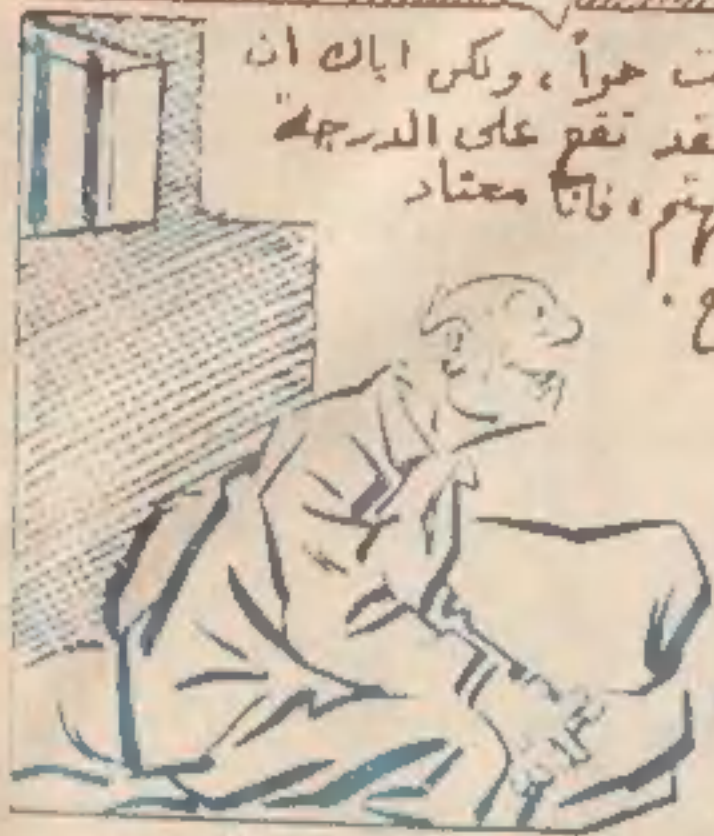 ت حراً، ولكن اياك ان
فقد تقع على الدرجة
فأنا معتاد